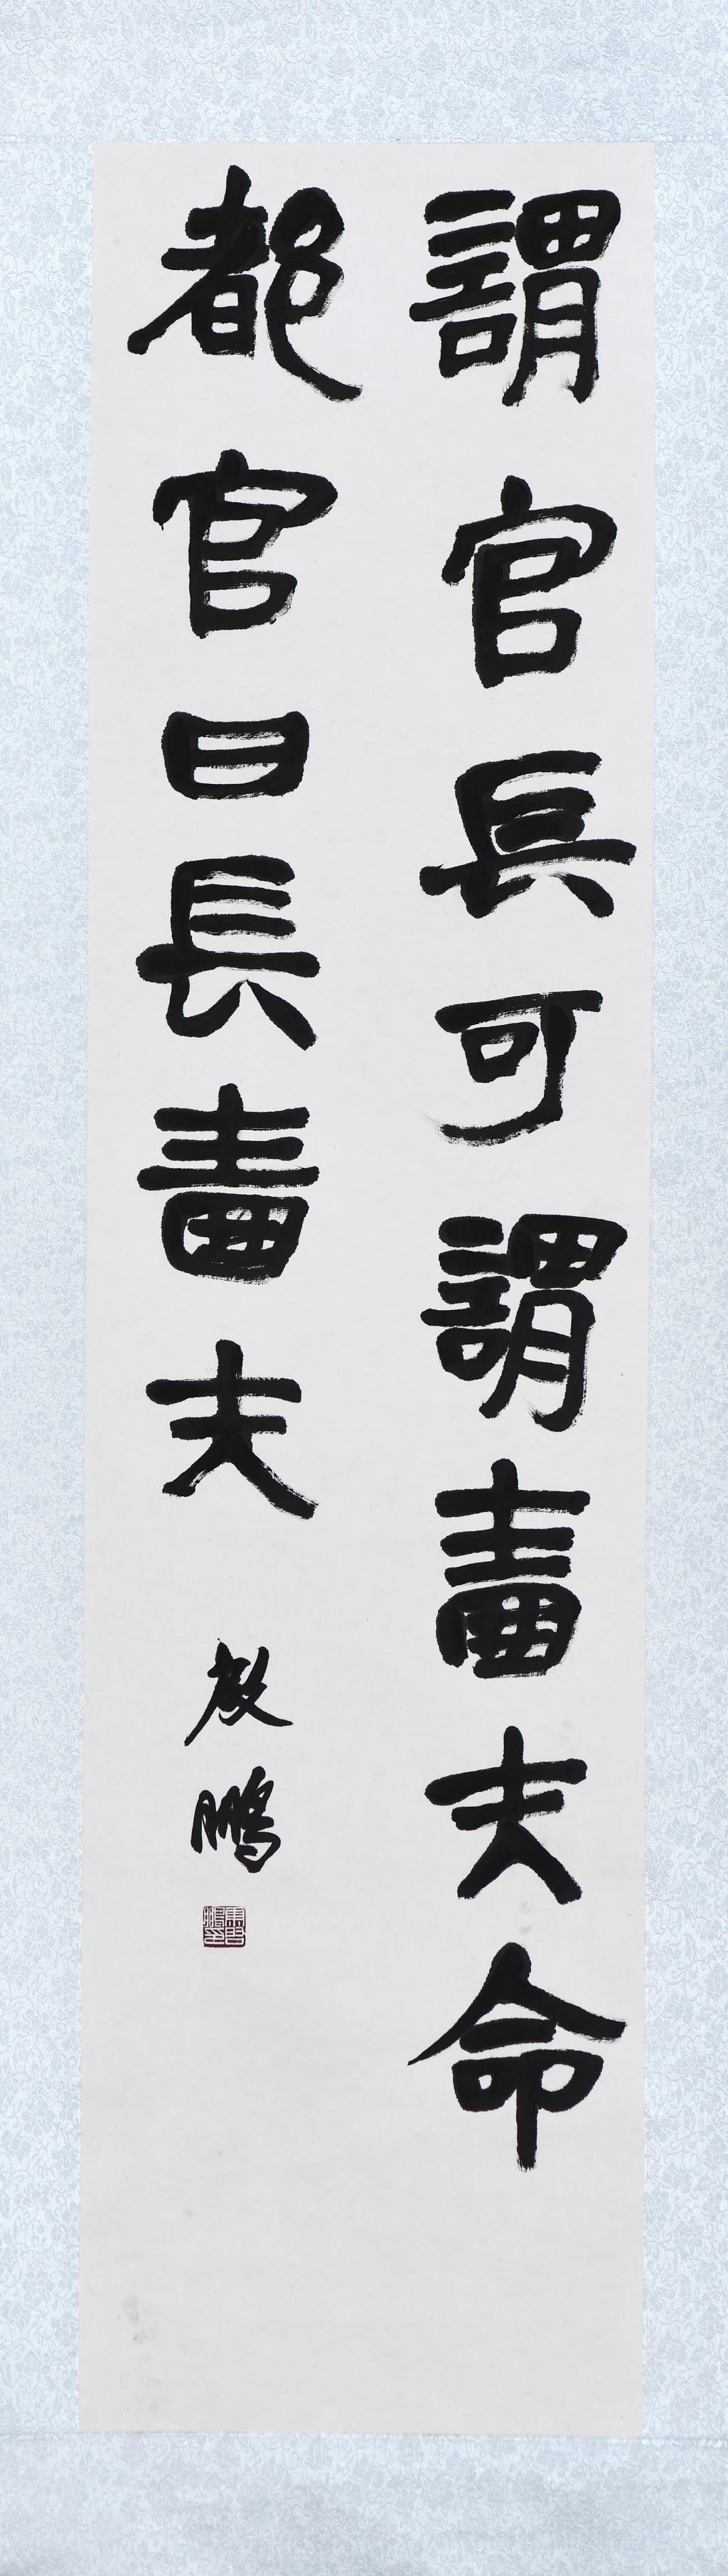 謂官長可謂嗇夫命
都官曰長嗇夫
啟鵬